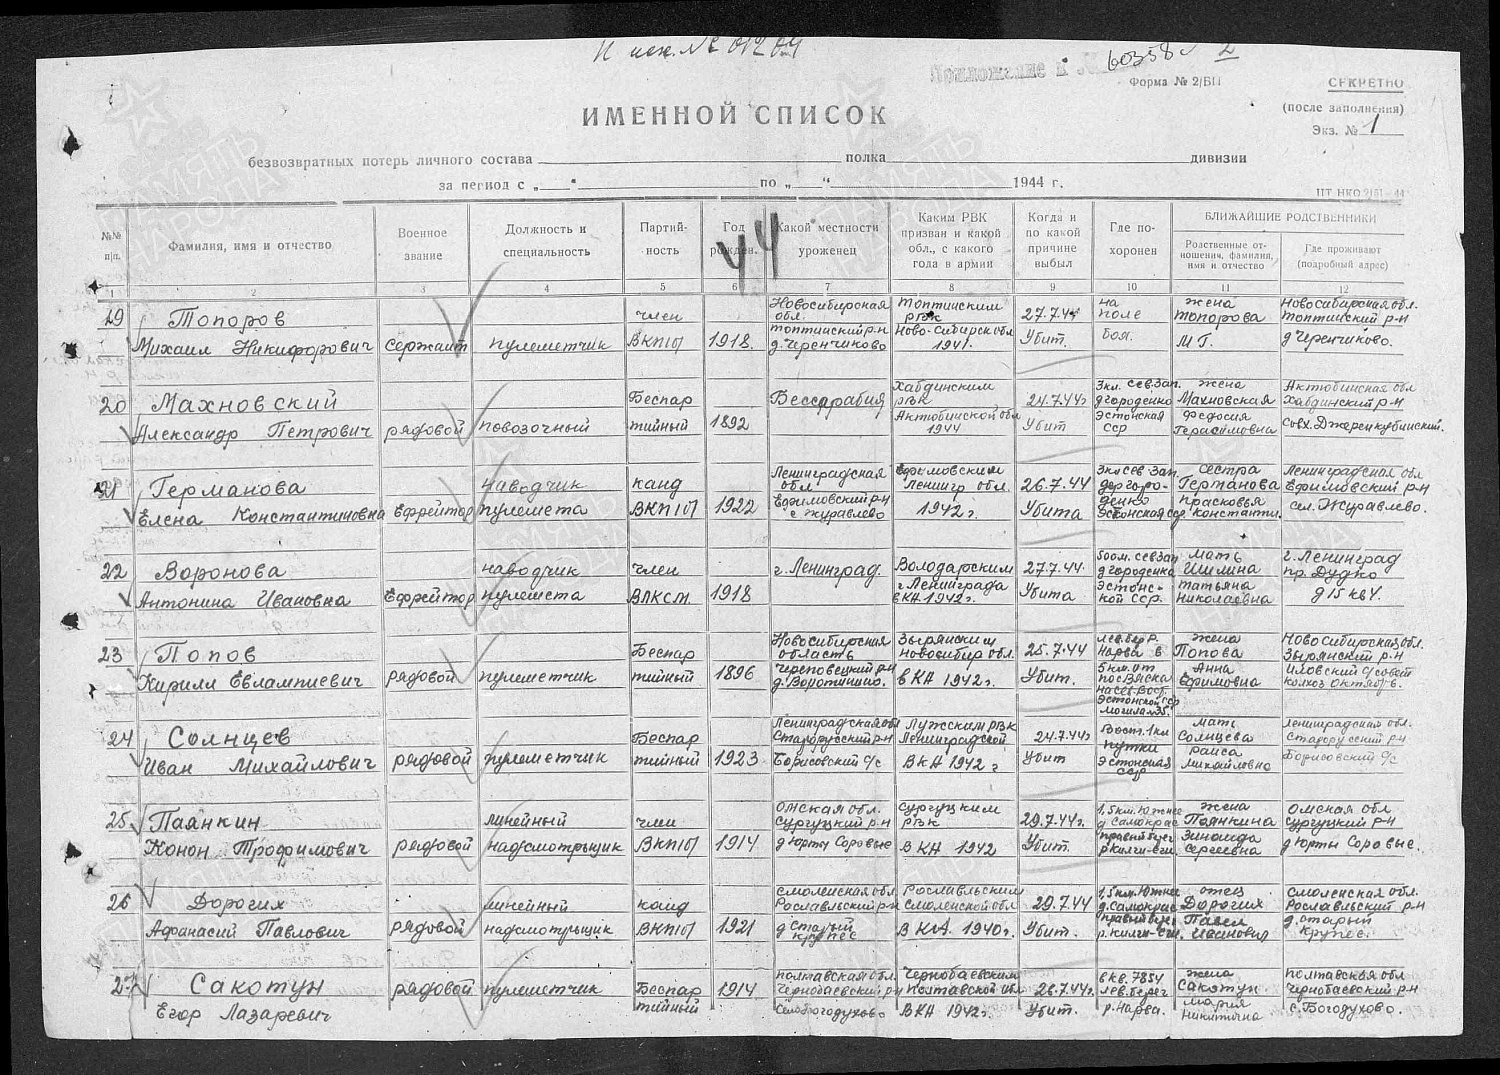 К исх. № 01204
Приложение к
60358с 2
Форма № 2/БП
СЕКРЕТНО
(после заполнения)
Экз. № 1
ИМЕННОЙ СПИСОК
безвозвратных потерь личного состава полка дивизии
за период с „ “ по „ “ 1944 г.
ЦТ НКО 2151—44
44
№№ п/п.
Фамилия, имя и отчество
Военное звание
Должность и специальность
Партийность
Год рожден.
Какой местности уроженец
Каким РВК призван и какой обл., с какого года в армии
Когда и по какой причине выбыл
Где похоронен
БЛИЖАЙШИЕ РОДСТВЕННИКИ
Родственные отношения, фамилия, имя и отчество
Где проживают (подробный адрес)
1 2 3 4 5 6 7 8 9 10 11 12
19 Топоров член Новосибирская обл. Топтинским РВК 27.7.44 на поле жена Топорова Новосибирская обл. Топтинский р-н
Михаил Никифорович сержант пулеметчик ВКП(б) 1918. Топтинский р-н д. Черенчиково Ново-Сибирск обл 1941. Убит. боя. М.Г. д Черенчиково.
20 Махновский Беспар Бессарабия Хабдинским РВК 24.7.44г 3кл. сев.зап. д городенко жена Махновская Актюбинская обл Хабдинский р-н
Александр Петрович рядовой повозочный тийный 1892 Актюбинской обл 1944 Убит Эстонская ССР Федосия Герасимовна Совх. Джеренкублинский.
21 Германова наводчик канд Ленинградская обл. Ефимовским Ленингр обл. 26.7.44 3кл сев Зап дер горо- сестра Германова Ленинградская обл Ефимовский р-н
Елена Константиновна Ефрейтор пулемета ВКП(б) 1922 Ефимовский р-н с Журавлево 1942г. Убита денко Эстонская сср Прасковья Константи. сел. Журавлево.
22 Воронова наводчик член г. Ленинград. Володарским 27.7.44. 500м. сев зап д городенко мать Ишлина г. Ленинград пр. Дудко
Антонина Ивановна Ефрейтор пулемета ВЛКСМ. 1918 г. Ленинграда в КА 1942г. Убита Эстонс- кой ССР. Татьяна Николаевна д 15 кв 4.
23 Попов Беспар Новосибирская область Зырянским Новосибир обл. 25.7.44 лев. бер р. Нарва в жена Попова Новосибирская обл. Зырянский р-н
Кирилл Евлампиевич рядовой пулеметчик тийный 1896 Череповецкий р-н д. Воротишино. в КА 1942г. Убит. 5 км. от пос Вяска на сев. Вост. Эстонской сср могила №35. Анна Ефимовна Иловский с/совет колхоз октябрь.
24 Солнцев Беспар Ленинградская обл Старорусский р-н Лужским РВК Ленинградской 24.7.44г Вост. 1 км путки мать Солнцева Ленинградская обл. Старорусский р-н
Иван Михайлович рядовой пулеметчик тийный 1923 Борисовский с/с в КА 1942 г Убит Эстонская ССР Раиса Михайловна Борисовский с/с
25 Паянкин линейный член Омская обл. Сургуцкий р-н Сургуцким РВК 29.7.44г. 1,5 км. Южнее д Самокрас жена Паянкина Омская обл Сургуцкий р-н
Конон Трофимович рядовой надсмотрщик ВКП(б) 1914 д Юрты Соровые в КА 1942 Убит. правый берег р. килги-еги. Зинаида Сергеевна д Юрты Соровые.
26 Дорогих линейный канд Смоленская обл. Рославльский р-н Рославльским Смоленской обл 29.7.44 1,5 км. Южнее д. Самокрас отец Дорогих Смоленская обл. Рославльский р-н
Афанасий Павлович рядовой надсмотрщик ВКП(б) 1921 д Старый Крупес в КА 1940г. Убит. правый берег р. килги-еги. Павел Иванович д. Старый Крупес.
27 Сакотун рядовой пулеметчик Беспар 1914 Полтавская обл. Чернобаевский р-н Чернобаевским Полтавской обл 26.7.44г. в кв. 7854 лев. берег жена Сакотун Полтавская обл Чернобаевский р-н
Егор Лазаревич тийный Село Богодухово в КА 1942г. Убит. р. Нарва. Мария Никитична с. Богодухово.
ПАМЯТЬ НАРОДА